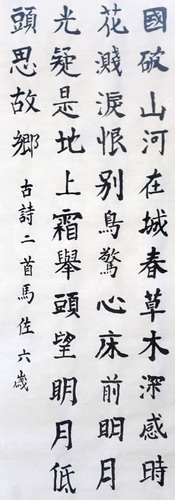 國破山河在城春草木深感時
花濺淚恨别鳥驚心床前明月
光疑是地上霜舉頭望明月低
頭思故鄉
古詩二首馬佐六歲